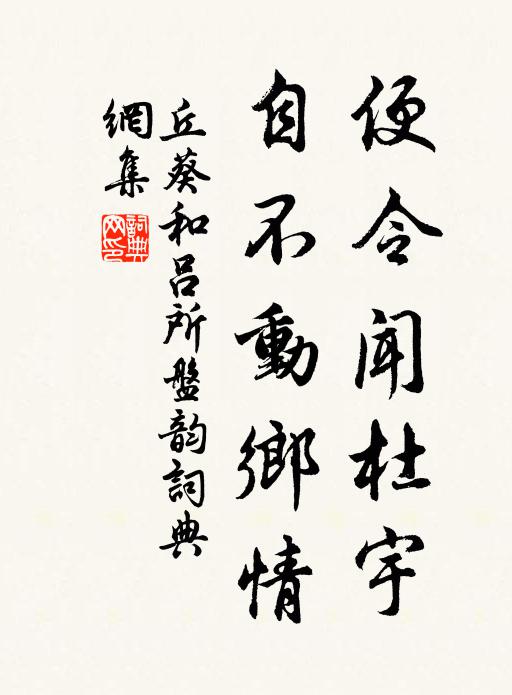 便令闻杜宇
自不動鄉情
丘葵和吕所盤韵詞典
網集
詞典網印